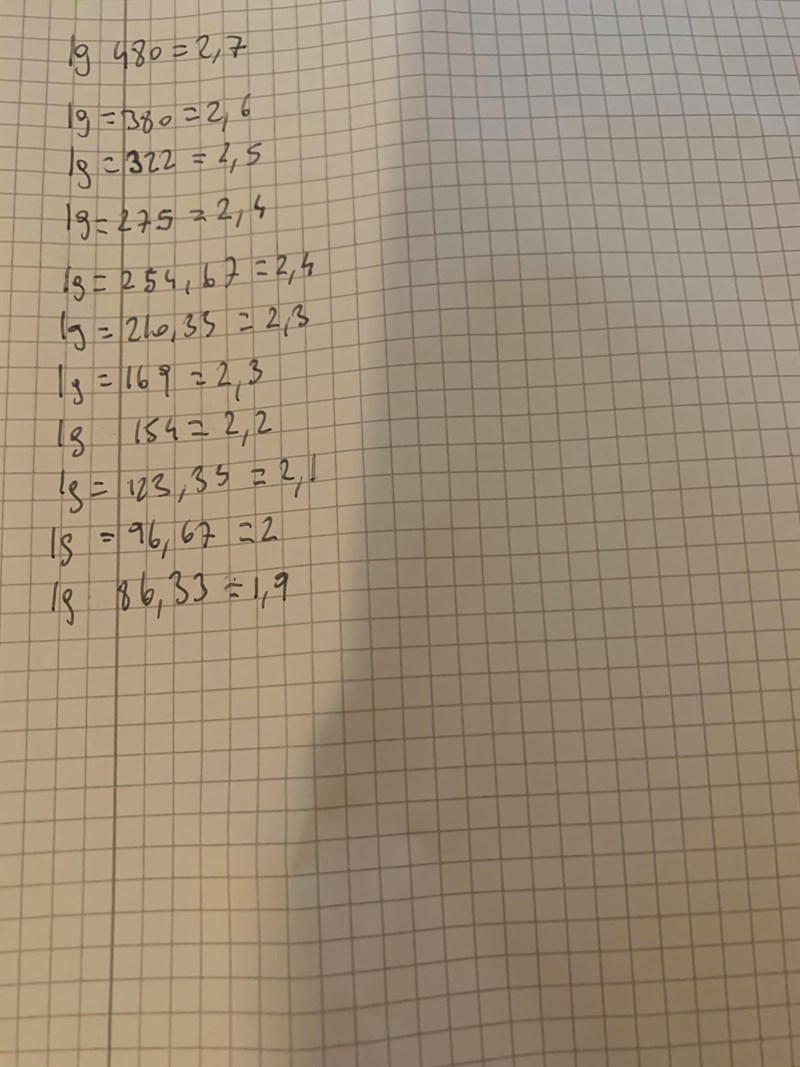 lg 480 = 2,7
lg = 380 = 2,6
lg = 322 = 2,5
lg = 275 = 2,4
lg = 254,67 = 2,4
lg = 210,35 = 2,3
lg = 169 = 2,3
lg 154 = 2,2
lg = 123,35 = 2,1
lg = 96,67 = 2
lg 86,33 = 1,9